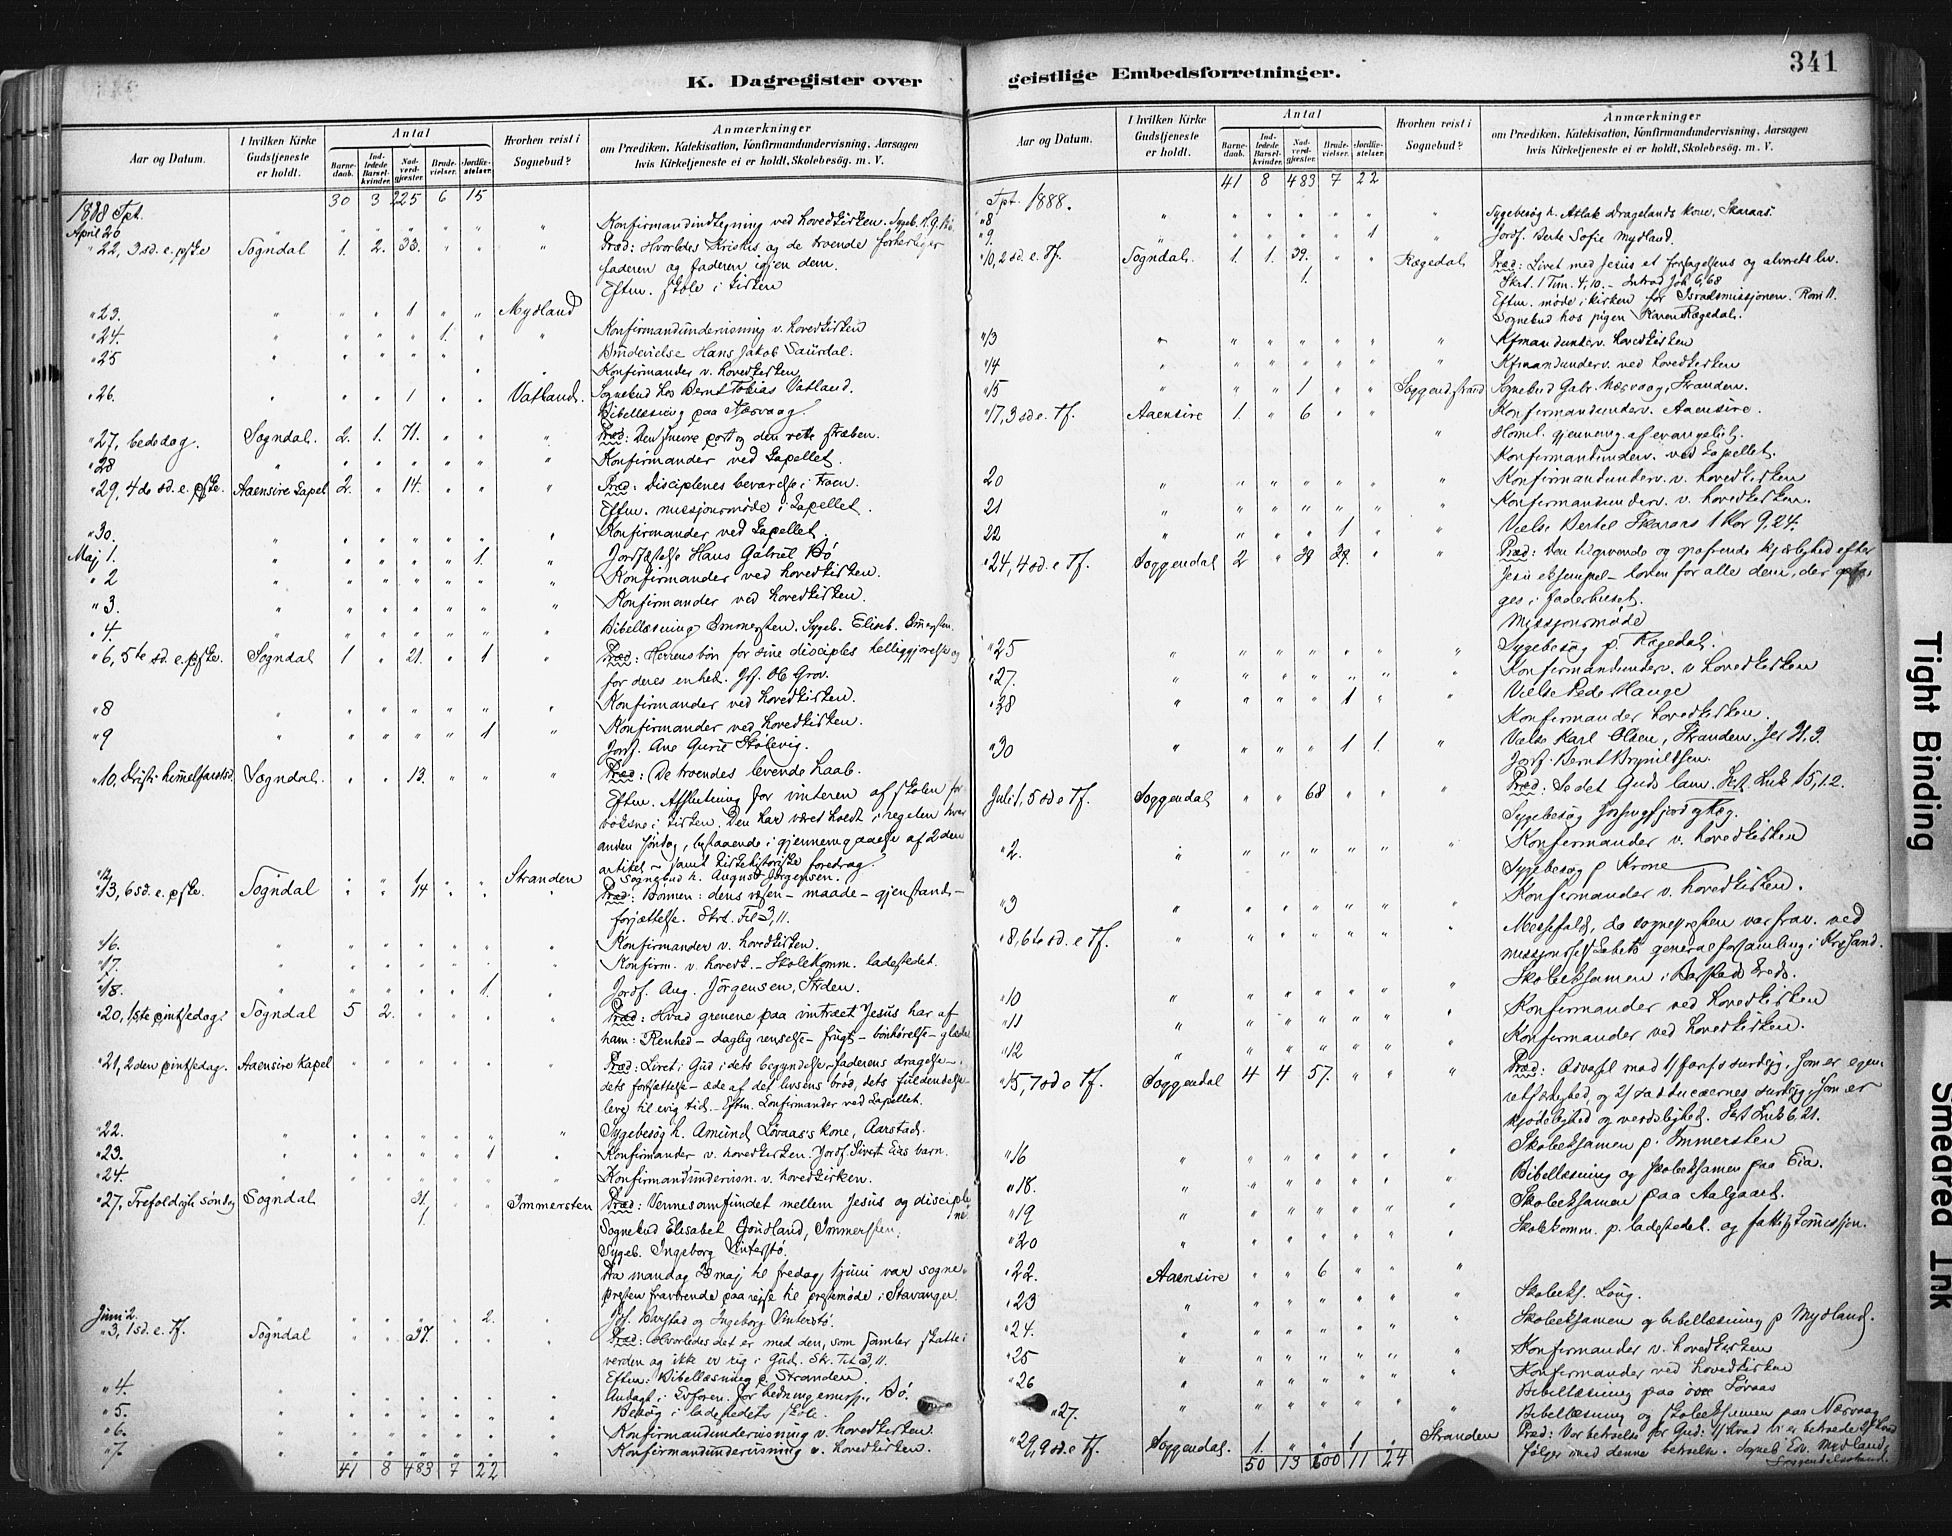 341
K. Dagregister over geistlige Embedsforretninger.
Aar og Datum.
I hvilken Kirke Gudstjeneste er holdt.
Antal
Barne-daab.
Ind-ledede Barsel-kvinder.
Nad-verd-gjæster.
Brude-vielser.
Jordfæ-stelser.
Hvorhen reist i Sognebud?
Anmærkninger
om Prædiken, Katekisation, Konfirmandundervisning, Aarsagen
hvis Kirketjeneste ei er holdt, Skolebesøg. m. V.
30 3 225 6 15
1888 Tpt.
April 20 " " " " " " " Konfirmandindtegning ved hovedkirken.
" 22, 3 sd. e. pske Sogndal 1. 2. 33. " " " Præd: Hvorledes Kristus og de troende forherliger
faderen og faderen igjen dem.
Eftm. skole i kirken
" 23. " " " 1 " " Mydland
" 24. " " " " 1. " " Konfirmandundervisning v. hovedkirken
" 25 " " " " " Brudevielse Hans Jakob Saurdal.
Konfirmander v. hovedkirken
" 26. " " " 1 " " Vatland. Sognebud hos Bernt Tobias Vatland.
Bibellæsning paa Næsvaag.
" 27, bededag. Sogndal. 2. 1. 71. " " " Præd: Den snevre port og den rette stræben.
" 28 " " " " " " " Konfirmander ved kapellet.
" 29, 4de sd. e. pske. Aaensire Kapel 2. " 14. " " " Præd: Disciplenes bevarelse i troen.
Eftm. missjonsmøde i kapellet.
" 30. " " " " " " " Konfirmander ved kapellet.
Maj 1. " " " " " 1. " Jordfæstelse Hans Gabriel Bø
" 2 " " " " " " " Konfirmander ved hovedkirken.
" 3. " " " " " " " Konfirmander ved hovedkirken.
" 4. " " " " " " " Bibellæsning Immersten. Sygeb. Eliseb. Immersten.
" 6, 5te sd. e. pske. Sogndal 1 " 21. " 1 " Præd: Herrens bøn for sine disciples helliggjørelse og
for deres enhed.
" 8 " " " " " " " Konfirmander ved hovedkirken.
" 9 " " " " " 1 " Konfirmander ved hovedkirken.
Jordf. Ane Guril Stølevig.
" 10, Kristi himmelfartsd. Sogndal. " " 13. " " " Præd: De troendes levende haab.
Eftm. Afslutning for vinteren af skolen for
voksne i kirken. Den har været holdt i regelen hver
anden søndag, bestaaende i gjennemgaaelse af 2den
artikel samt kirkehistoriske foredrag.
" 12 " " 1 " " Stranden Sognebud h. August Jørgensen.
" 13, 6 sd. e. pske. Sogndal " " 14 " " " Præd: Bønnen: dens væsen – maade – gjenstand –
forjættelse.
" 16. " " " " " " " Konfirmander v. hovedkirken.
" 17. " " " " " " " Konfirm. v. hovedk. – Skolekomm. ladestedet.
" 18. " " " " " 1. " Jordf. Aug. Jørgensen, Strden.
" 20, 1ste pintsedag. Sogndal 5 2. " " " " Præd: Hvad grenene paa vintræet Jesus har af
ham: Renhed – daglig renselse – frugt – bønhørelse – glæde
" 21, 2den pintsedag. Aaensire Kapel " " " " " " Præd: Livet i Gud i dets begyndelse faderens dragelse –
dets fortsættelse – æde af det livsens brød, dets fuldendelse
leve til evig tid. – Eftm. Konfirmander ved kapellet.
" 22. " " " " " " " Sygebesøg h. Amund Løvaas's kone, Aarstad.
" 23. " " " " " 1 " Konfirmander v. hovedkirken. Jordf. Sivert Eias barn.
" 24. " " " " " " " Konfirmandundervisn. v. hovedkirken.
" 27, Trefoldigh. søndag Sogndal " " 21, " " Immersten Præd: Vennesamfundet mellem Jesus og disciple
1. ne
Sognebud Elisabet Jøndland, Immersten.
Sygeb. Ingeborg Vinterstø.
Fra mandag 28 maj til fredag 1 juni var sogne-
presten fraværende paa rejse til prestemøde i Stavanger.
Juni 2. " " " " " 2. " Jordf. Barstad og Ingeborg Vinterstø.
" 3, 1 sd. e. Tf. Sogndal " " 37. " " " Præd: Hvorledes det er med den, som samler skatte i
verden og ikke er rig i Gud. Skr. Tit. 3, 11.
Eftm: Bibellæsning p. Stranden.
" 4. " " " " " " " Bø.
" 5. " " " " " " " Besøg i ladestedets skole.
" 6. " " " " " " " Konfirmandundervisning v. hovedkirken.
" 7. " " " " " " " Konfirmandundervisning v. hovedkirken.
41 8 483 7 22
Aar og Datum.
I hvilken Kirke Gudstjeneste er holdt.
Antal
Barne-daab.
Ind-ledede Barsel-kvinder.
Nad-verd-gjæster.
Brude-vielser.
Jordfæ-stelser.
Hvorhen reist i Sognebud?
Anmærkninger
om Prædiken, Katekisation, Konfirmandundervisning, Aarsagen
hvis Kirketjeneste ei er holdt, Skolebesøg. m. V.
41 8 483 7 22
Tpt. 1888.
" 8 " " " " " " " Sygebesøg h. Aslak Dragelands kone, Skaraas.
" 9. " " " " " 1 " Jordf. Berte Sofie Mydland.
" 10, 2 sd. e. Tf. Sogndal. 1. 1. 39. " " Rægedal Præd: Livet med Jesus et forsagelsens og alvorets liv.
1. Skrt. 1 Tim. 4, 10. – Introd Joh 6, 68
Eftm. møde i kirken for Israelsmissjonen. Rom 11.
Sognebud hos pigen Karen Rægedal.
" 13 " " " " " " " Kfmandunderv. hovedkirken
" 14 " " " " " " " Kfmandunderv. ved hovedkirken
" 15 " " " 1 " " Soggendstrand Sognebud Gabr. Næsvaag, Stranden.
" 17, 3 sd e. Tf. Aaensire 1. " 6 " " Konfirmandunderv. Aaensire.
Homil. gjennemg. af evangeliet.
Konfirmandunderv. ved kapellet.
20 " " " " " " " Konfirmandunderv. v. hovedkirken
21 " " " " " " " Konfirmandunderv. v. hovedkirken.
22 " " " " 1 " " Vielse Bertel Skaraas 1 Kor 9, 24.
" 24, 4 sd. e Tf. Soggendal 2 " 29 29. " " Præd: Den tilgivende og opofrende kjærlighed efter
Jesu eksempel – loven for alle dem, der
ges i faderhuset.
Missjonsmøde
" 25 " " " " " " " Sygebesøg p. Rægedal.
" 27. " " " " " " " Konfirmandunderv. v hovedkirken
" 28 " " " " 1 " " Vielse Peder Hauge
Konfirmander hovedkirken.
" 30 " " " " 1 1. " Vielse Karl Olsen, Stranden.
Jordf. Bernt Brynildsen.
Juli 1, 5 sd e Tf. Soggendal " " 68 " " " Præd: Se det Guds lam. Skt. Luk 15, 1 2.
Sygebesøg
" 2. " " " " " " " Konfirmander v. hovedkirken
Sygebesøg p Krone
" 3 " " " " " " " Konfirmander v. hovedkirken.
" 8, 6te sd. e Tf. " " " " " " " Messefald, da sognepresten var frav. ved
missjonsselskabets generalforsamling i Krsand.
Skoleeksamen i Barstads kreds.
" 10 " " " " " " " Konfirmander ved hovedkirken
" 11 " " " " " " " Konfirmander ved hovedkirken.
" 12 " " " " " " "
" 15, 7 sd e Tf. Soggendal 4 4 57. " " " Præd: Advarsel mod 1/ surdejg, som er egen
retfærdighed, og 2/ sadducæernes surdejg, som er
kjødelighed og verdslighed. Skt Luk 6, 21.
" 16 " " " " " " " Skoleeksamen p. Immersten
" 18. " " " " " " " Bibellæsning og skoleeksamen paa Eia.
" 19 " " " " " " " Skoleeksamen paa Aalgaard.
" 20 " " " " " " " Skolekomm. p. ladestedet. og fattigkomissjon.
" 22. Aaensire " " 6 " " "
" 23 " " " " " " " Skoleeks. Log.
" 24. " " " " " " " Skoleeksamen og bibellæsning p Mydland.
" 25 " " " " " " " Konfirmander v. hovedkirken
" 26 " " " " " " " Konfirmander ved hovedkirken
Bibellæsning paa øvre Løvaas
" 27. " " " " " " " Bibellæsning og skoleeksamen paa Næsvaag
" 29, 9 sd. e Tf. Soggendal. 1. " " 1 " Stranden Præd: Vor betroelse for Gud: 1/ Hvad vi er betroede 2/ Hvad
følger med denne betroelse. Sogneb Edv. Mydland,
Soggendalsstrand.
50 13 600 11 24
Tight Binding
Smeared Ink